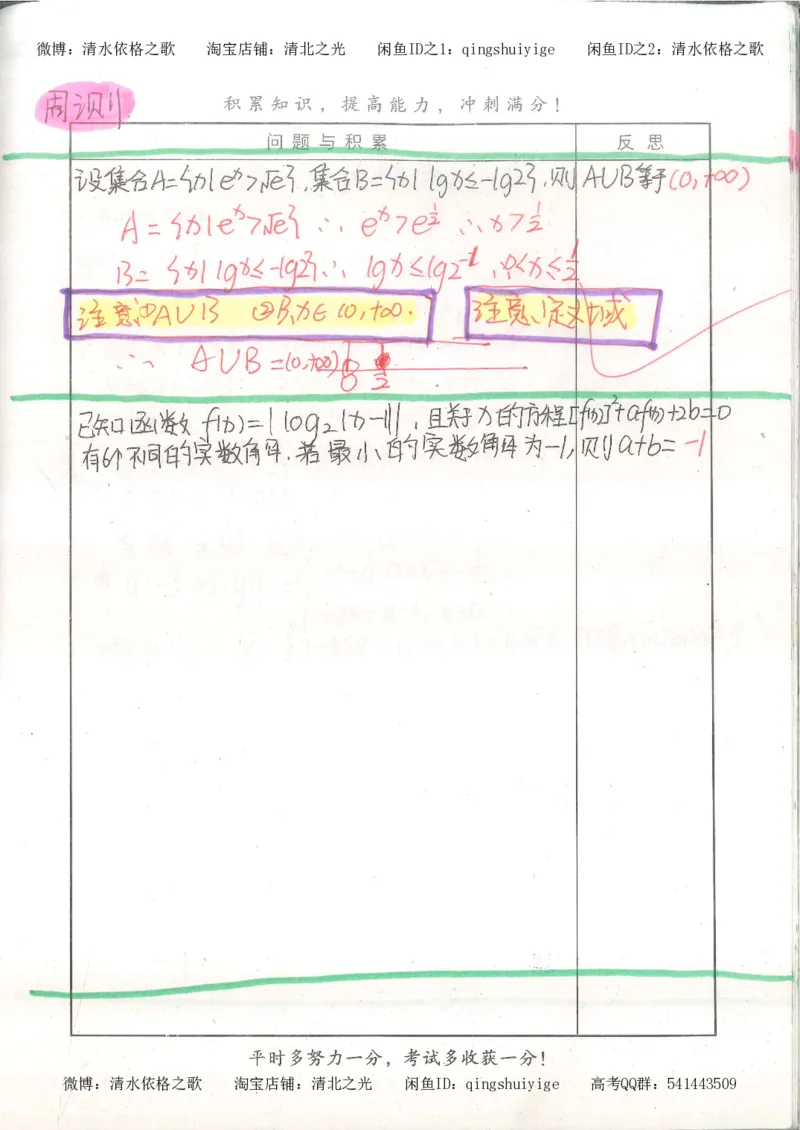 微博：清水依格之歌 淘宝店铺：清北之光 闲鱼ID之1：qingshuiyige 闲鱼ID之2：清水依格之歌
周测1
积累知识，提高能力，冲刺满分！
问题与积累 反思
设集合A={x|eˣ>√e},集合B={x|lgx≤-lg2},则A∪B等于(0,+∞)
A={x|eˣ>√e} ∴ eˣ>e^½ ∴x>½
B={x|lgx≤-lg2}∴ lgx≤lg2⁻¹ ∴0<x≤½
注意①A∪B ②B,x∈(0,+∞. 注意定义域
∴ A∪B=(0,+∞) 0 ½
已知函数 f(x)=|log₂|x-1||,且关于x的方程[f(x)]²+af(x)+2b=0
有6个不同的实数解.若最小的实数解为-1,则a+b= -1
平时多努力一分，考试多收获一分！
微博：清水依格之歌 淘宝店铺：清北之光 闲鱼ID：qingshuiyige 高考QQ群：541443509